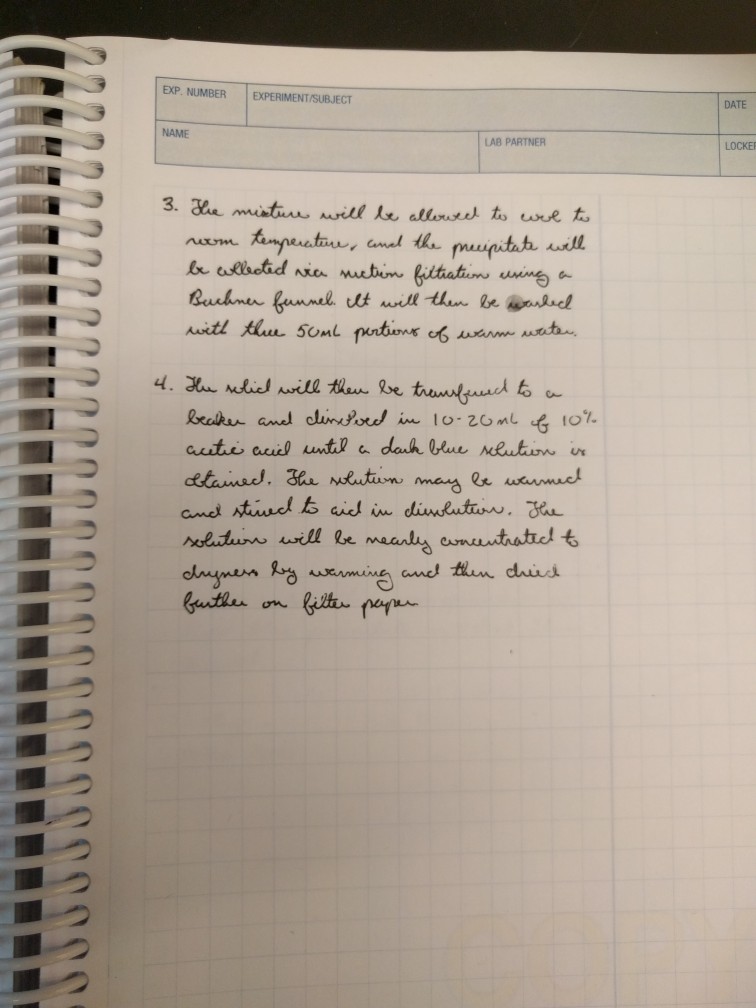 EXP. NUMBER
EXPERIMENT/SUBJECT
DATE
NAME
LAB PARTNER
LOCKER
3. The mixture will be allowed to cool to
room temperature, and the precipitate will
be collected via suction filtration using a
Buchner funnel. It will then be washed
with three 50mL portions of warm water.
4. The solid will then be transferred to a
beaker and dissolved in 10-20 mL of 10%
acetic acid until a dark blue solution is
obtained. The solution may be warmed
and stirred to aid in dissolution. The
solution will be nearly concentrated to
dryness by warming and then dried
further on filter paper
COPY